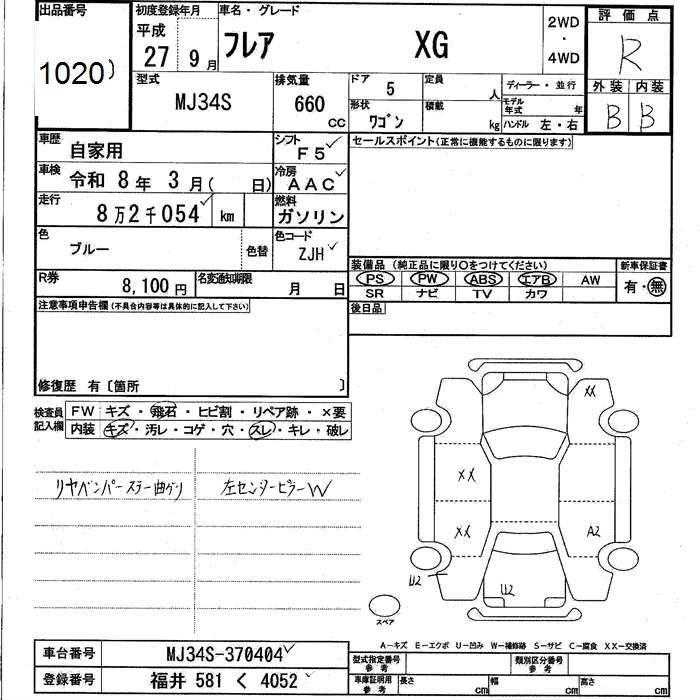 出品番号
1020)
初度登録年月
平成
27 9月
車名・グレード
フレア XG
2WD
・
4WD
評価点
R
外装 内装
B B
型式
MJ34S
排気量
660
CC
ドア 5
定員 人
形状 ワゴン
積載 kg
ディーラー・並行
モデル年式 年
ハンドル 左・右
車歴
自家用
シフト
F5
車検
令和 8年 3月( 日)
冷房
AAC
走行
8万2千054 km
燃料
ガソリン
色
ブルー
色替
色コード
ZJH
R券
8,100円
名変通知期限
月 日
セールスポイント(正常に機能するものに限ります)
装備品 (純正品に限り○をつけてください)
PS PW ABS エアB AW
SR ナビ TV カワ
新車保証書
有・無
後日品
注意事項申告欄(不具合内容等は具体的に記入して下さい)
修復歴 有〔箇所 〕
検査員
記入欄
FW キズ・飛石・ヒビ割・リペア跡・×要
内装 キズ・汚レ・コゲ・穴・スレ・キレ・破レ
リヤバンパーステー曲ガリ
左センターピラーW
XX
XX
XX
A2
U2
U2
スペア
A-キズ E-エクボ U-凹み W-補修跡 S-サビ C-腐食 XX-交換済
車台番号 MJ34S-370404
登録番号 福井 581 く 4052
型式指定番号
参考
類別区分番号
参考
車庫証明用
参考
長さ cm 幅 cm 高さ cm